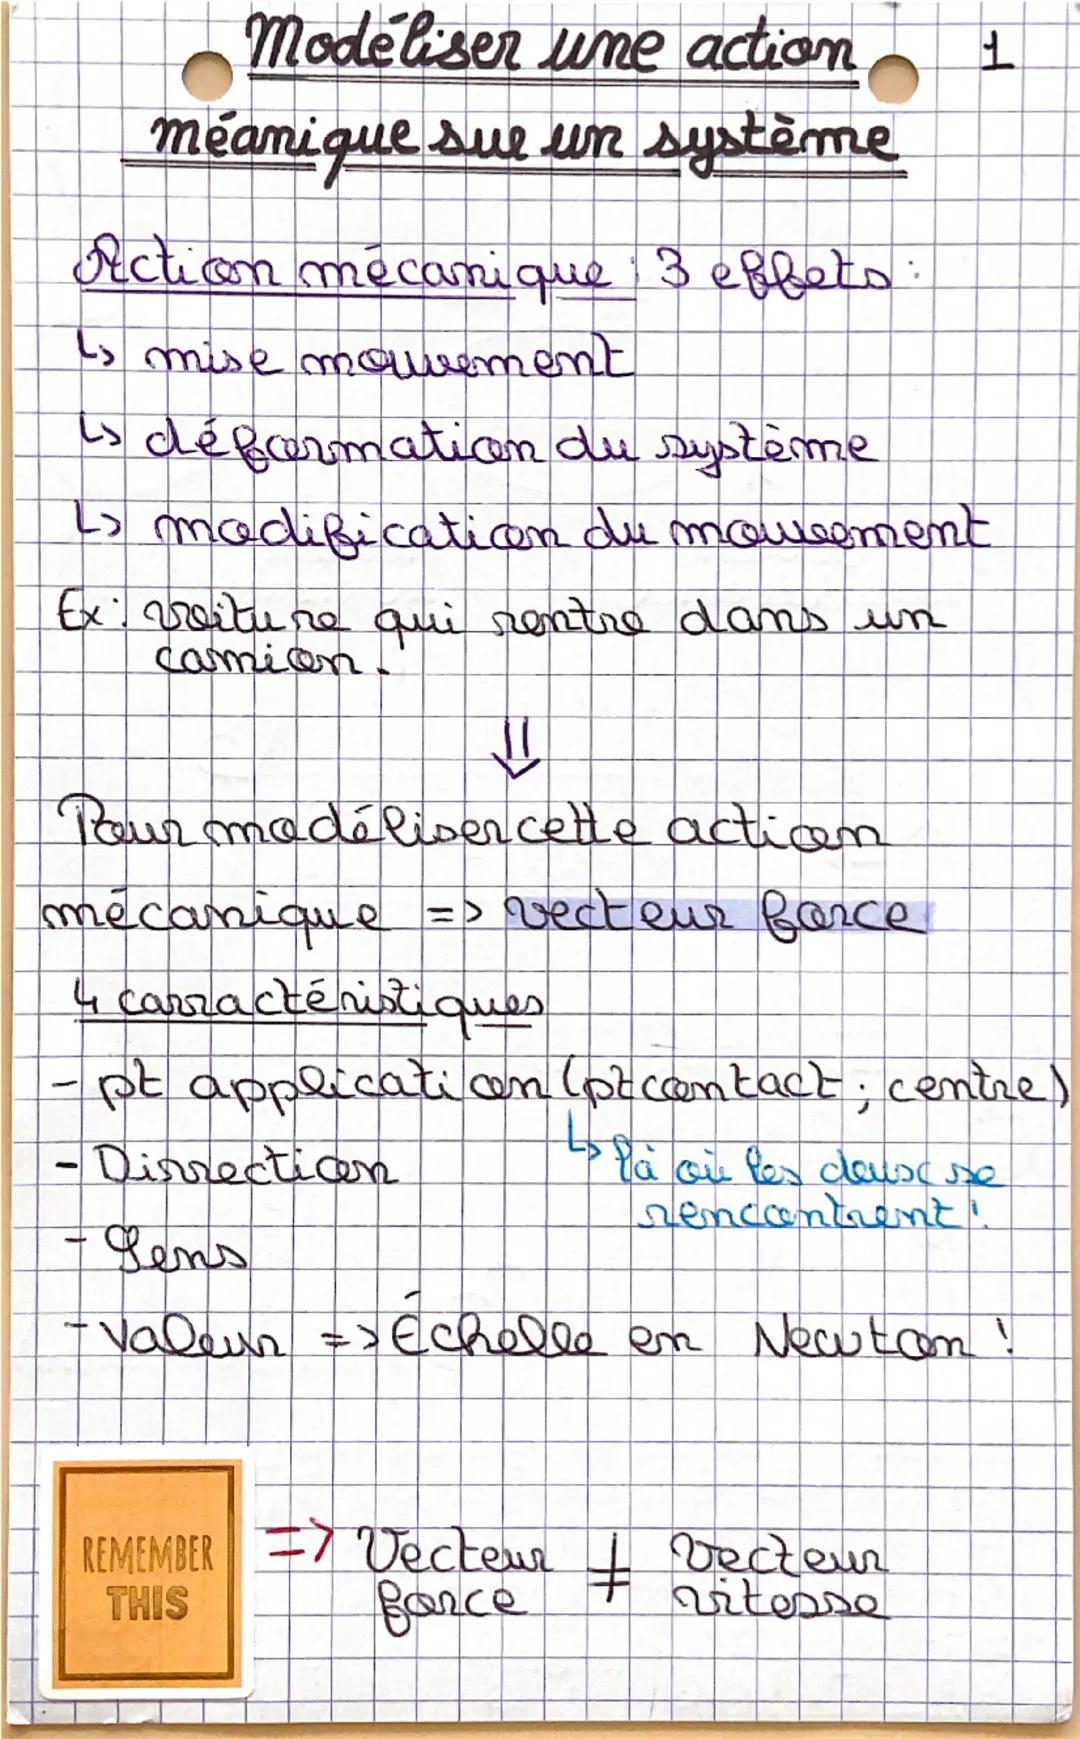 Modéliser une action 1
méanique sur un système
Action mécanique : 3 effets :
↳ mise mouvement
↳ déformation du système
↳ modification du mouvement
Ex : voiture qui rentre dans un
camion.
⇓
Pour modéliser cette action
mécanique => vecteur force
4 carractéristiques
- pt application (pt contact ; centre)
↳ là où les deux se
rencontrent !
- Dirrection
- Sens
- Valeur => Échelle en Newton !
REMEMBER
THIS
=> Vecteur ≠ vecteur
force vitesse